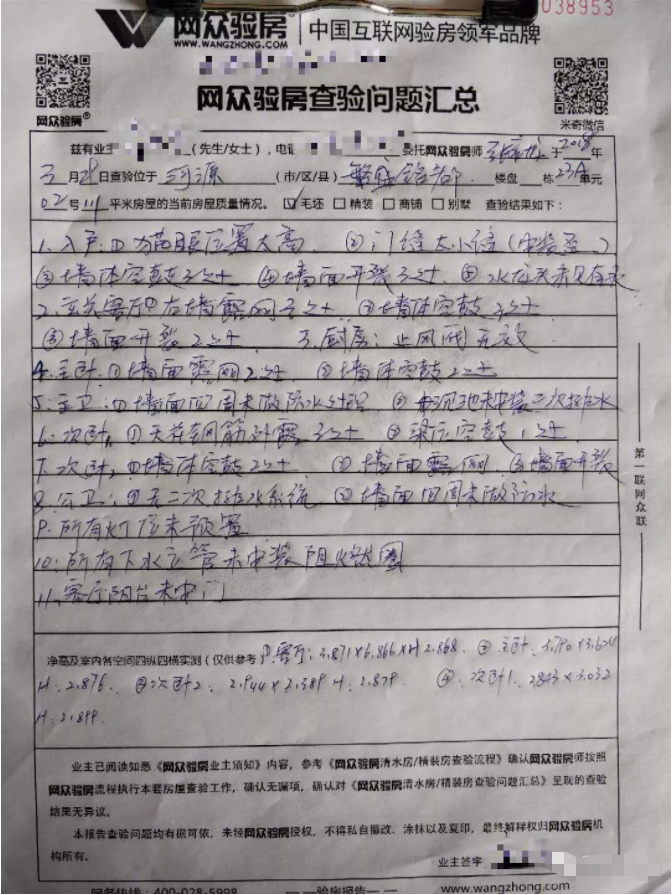 038953
网众验房 中国互联网验房领军品牌
WWW.WANGZHONG.COM
网众验房® 网众验房查验问题汇总 米奇微信
兹有业主 (先生/女士)，电话 委托网众验房师 2018年
3月28日查验位于河源(市/区/县) 楼盘 栋23A单元
02号111平米房屋的当前房屋质量情况。☑毛坯 □精装 □商铺 □别墅 查验结果如下：
1.入户:①猫眼位置太高 ②门缝大小
③墙体空鼓3处 ④墙面开裂3处 ⑤水
2.玄关客厅①右墙露网3处 ②墙体空鼓3处
③墙面开裂2处 3.厨房:止风阀无效
4.主卧:①墙面露网2处 ②墙体空鼓2处
5.主卫:①墙面四周未做防水处理 ② 二次排水
6.次卧1①天花钢筋外露3处 ②梁位空鼓1处
7.次卧2①墙体空鼓2处 ②墙面露网 ③墙面开裂
8.公卫:①无二次排水系统 ②墙面四周未做防水
9.所有灯位未预留
10:所有下水主管未安装阻火圈
11.客厅阳台未安门
净高及室内各空间四纵四横实测(仅供参考 ①.客厅:3.871×6.866×H2.868. ②主卧:3.790×3.624
H:2.876. ③次卧2:2.944×2.389 H:2.879. ④.次卧1:2.843×3.032
H:2.899.
业主已阅读知悉《网众验房业主须知》内容，参考《网众验房清水房/精装房查验流程》确认网众验房师按照
网众验房流程执行本套房屋查验工作，确认无漏项，确认对《网众验房清水房/精装房查验问题汇总》呈现的查验
结果无异议。
本报告查验问题均有据可依，未经网众验房授权，不得私自撮改、涂抹以及复印，最终解释权归网众验房机
构所有。
业主签字：
服务热线：400-028-5998 —验房报告— www.wangzhong.com
第一联网众联